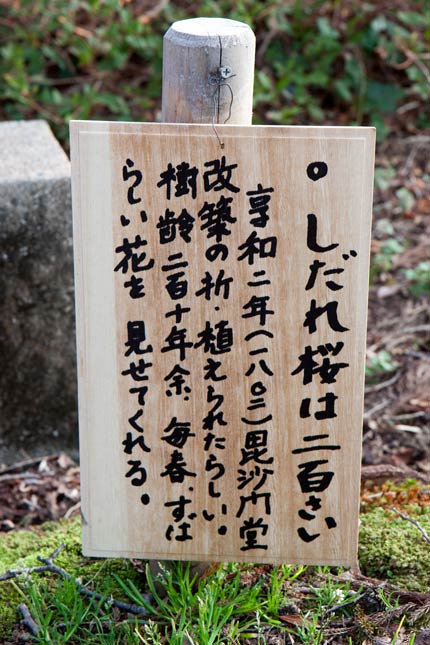 ○しだれ桜は二百さい
享和二年(一八〇二)毘沙門堂
改築の折、植えられたらしい。
樹齢二百十年余、毎春、すば
らしい花を見せてくれる。